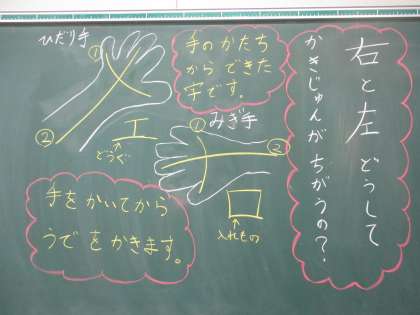 右と左 どうして
かきじゅんが ちがうの？
手のかたち
から できた
字です。
ひだり手
①
②
どうぐ
みぎ手
①
②
入れもの
手を かいてから
うで を かきます。